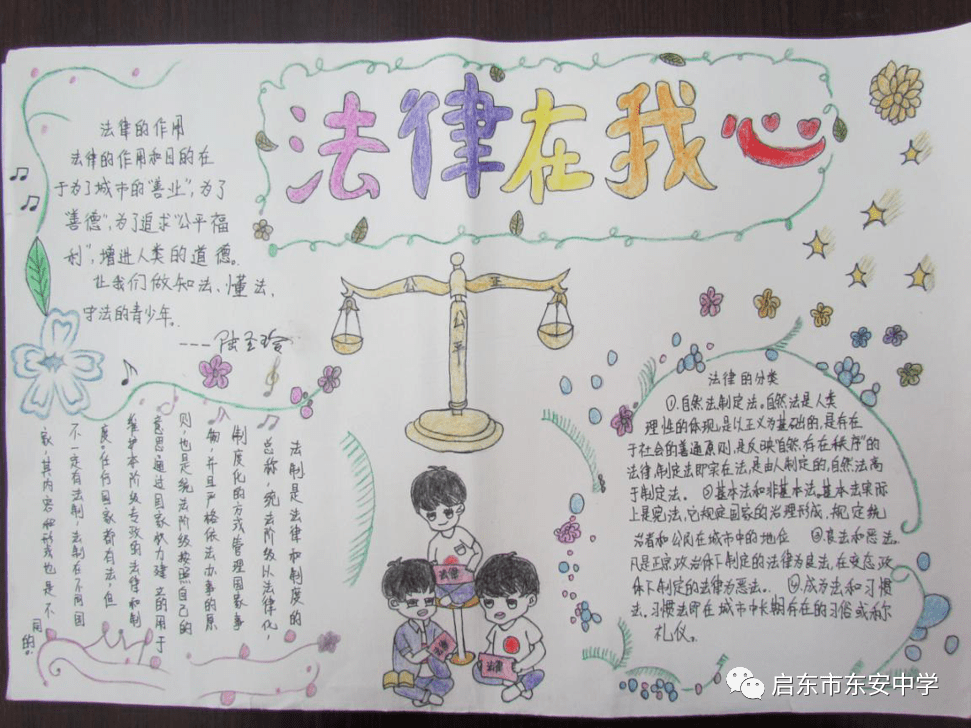 法律在我心
法律的作用
法律的作用和目的在
于为了城市的"善业"，为了
"善德"，为了追求"公平福
利"，增进人类的道德。
让我们做知法、懂法、
守法的青少年。
公 正
公平
法制是法律和制度的
总称，统治阶级以法律化，
制度化的方式管理国家事
物，并且严格依法办事的原
则，也是统治阶级按照自己的
意思通过国家权力建立的用于
维护本阶级专政的法律和制
度。任何国家都有法，但
不一定有法制，法制在不同国
家，其内容和形式也是不
同的。
法律
法律
法律
法律的分类
①自然法制定法。自然法是人类
理性的体现，是以正义为基础的，是存在
于社会的普通原则，是反映"自然存在秩序"的
法律，制定法即实在法，是由人制定的，自然法高
于制定法。②基本法和非基本法。基本法实际
上是宪法，它规定国家的治理形成，规定执
治者和公民在城市中的地位 ③良法和恶法。
凡是正宗政治体下制定的法律为良法，在变态政
体下制定的法律为恶法。④成为法和习惯
法。习惯法即在城市中长期存在的习俗或称
礼仪。
启东市东安中学